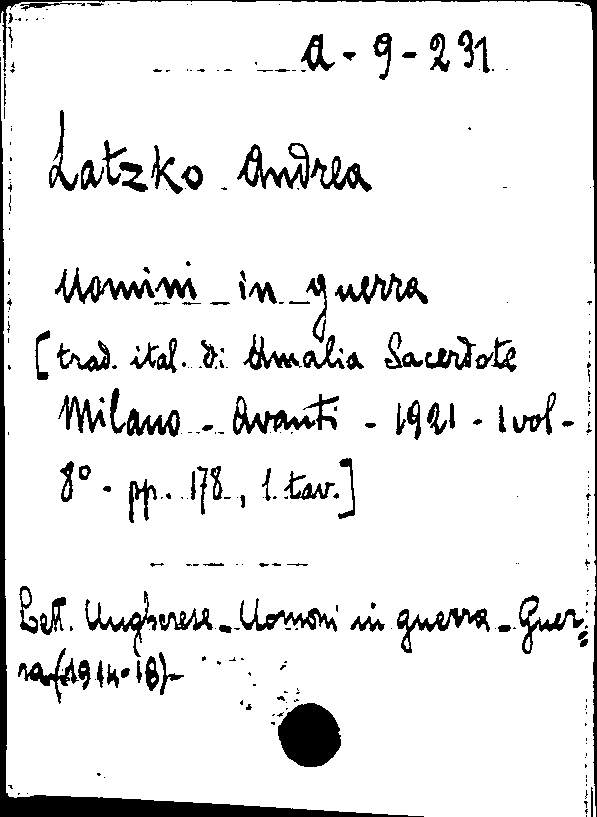 A - 9 - 231
Latzko Andrea
Uomini in guerra
[trad. ital. di Amalia Sacerdote
Milano - Avanti - 1921 - 1 vol -
8° - pp. 178, 1 tav.]
Lett. Ungherese - Uomoni in guerra - Guer=
ra (1914-18) -